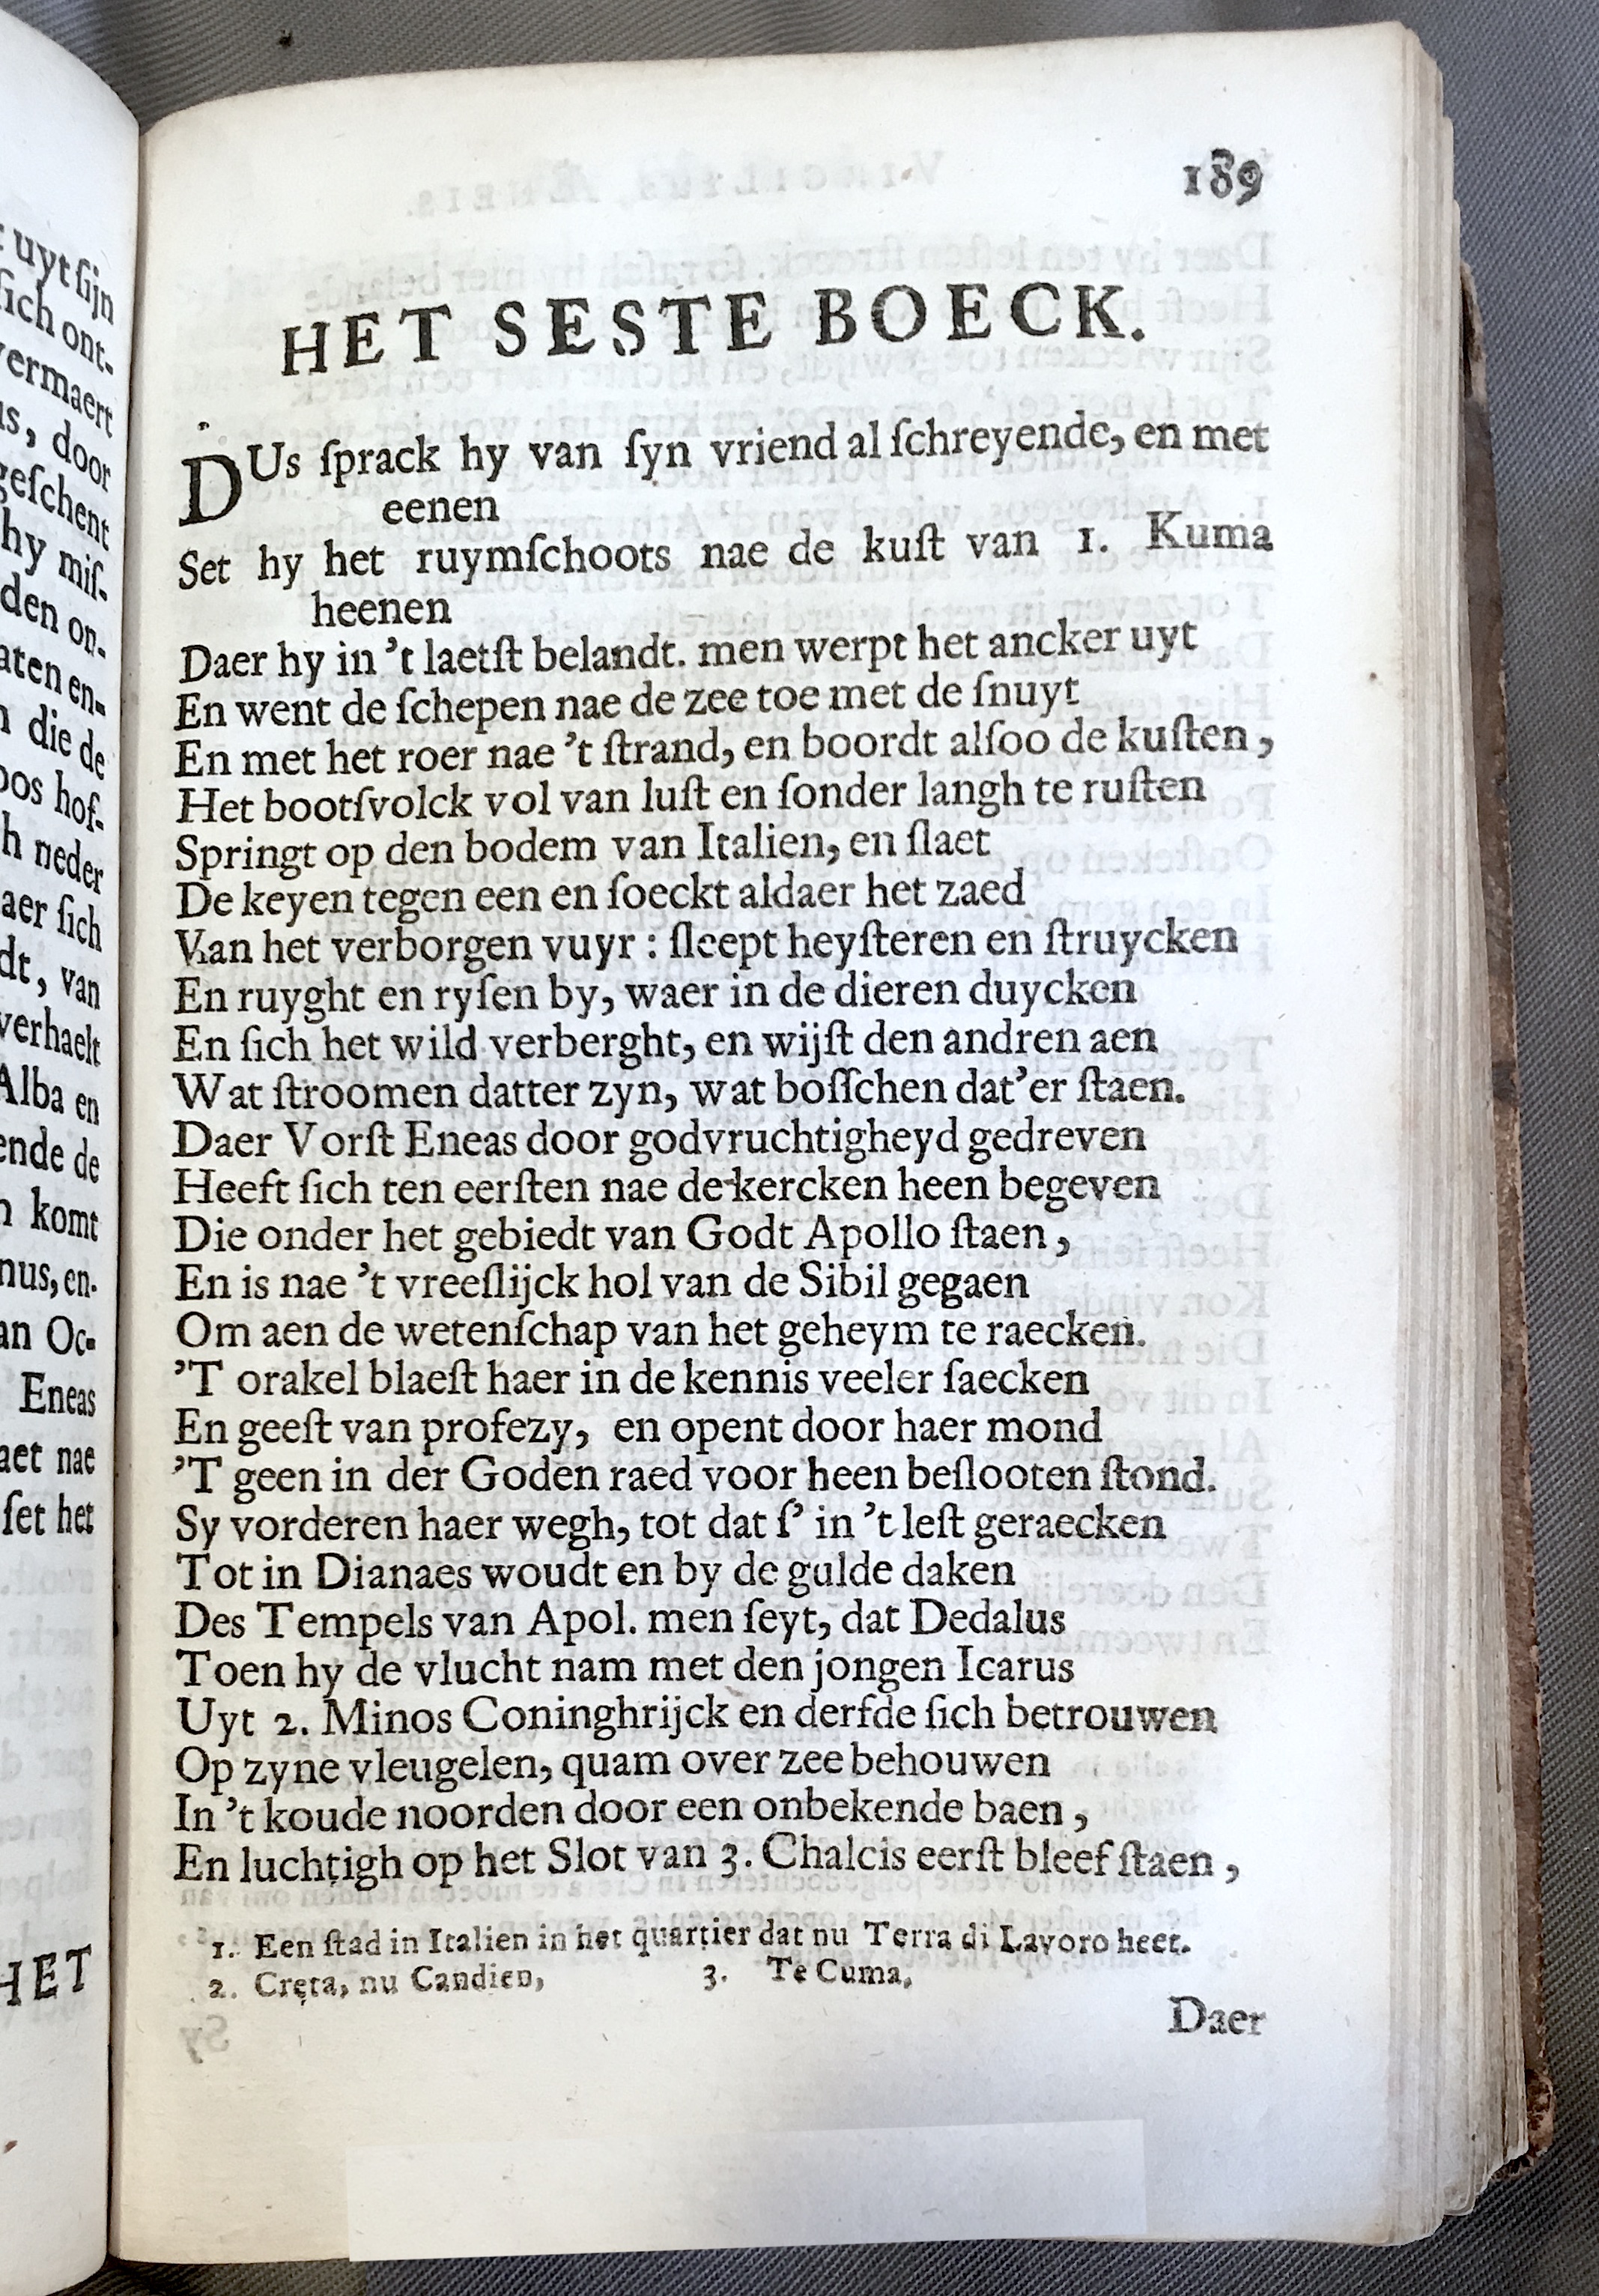 uyt ſijn
ſich ont-
vermaert
door
geſchent
hy miſ-
den on-
en-
die de
hof-
neder
ſich
van
verhaelt
Alba en
de
komt
en-
Oc-
Eneas
nae
ſet het
HET
189
HET SESTE BOECK.
DUs ſprack hy van ſyn vriend al ſchreyende, en met
eenen
Set hy het ruymſchoots nae de kuſt van 1. Kuma
heenen
Daer hy in 't laetſt belandt. men werpt het ancker uyt
En went de ſchepen nae de zee toe met de ſnuyt
En met het roer nae 't ſtrand, en boordt alſoo de kuſten,
Het bootſvolck vol van luſt en ſonder langh te ruſten
Springt op den bodem van Italien, en ſlaet
De keyen tegen een en ſoeckt aldaer het zaed
Van het verborgen vuyr : ſleept heyſteren en ſtruycken
En ruyght en ryſen by, waer in de dieren duycken
En ſich het wild verberght, en wijſt den andren aen
Wat ſtroomen datter zyn, wat boſſchen dat'er ſtaen.
Daer Vorſt Eneas door godvruchtigheyd gedreven
Heeft ſich ten eerſten nae de kercken heen begeven
Die onder het gebiedt van Godt Apollo ſtaen,
En is nae 't vreeſlijck hol van de Sibil gegaen
Om aen de wetenſchap van het geheym te raecken.
'T orakel blaeſt haer in de kennis veeler ſaecken
En geeſt van profezy, en opent door haer mond
'T geen in der Goden raed voor heen beſlooten ſtond.
Sy vorderen haer wegh, tot dat ſ' in 't leſt geraecken
Tot in Dianaes woudt en by de gulde daken
Des Tempels van Apol. men ſeyt, dat Dedalus
Toen hy de vlucht nam met den jongen Icarus
Uyt 2. Minos Coninghrijck en derfde ſich betrouwen
Op zyne vleugelen, quam over zee behouwen
In 't koude noorden door een onbekende baen,
En luchtigh op het Slot van 3. Chalcis eerſt bleef ſtaen,
1. Een ſtad in Italien in het quartier dat nu Terra di Lavoro heet.
2. Creta, nu Candien, 3. Te Cuma,
Daer